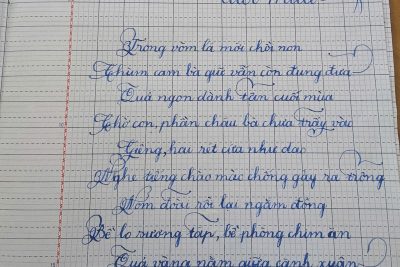 Trong vòm lá mới chồi non
Chùm cam bà giữ vẫn còn đung đưa
Quả ngon dành tận cuối mùa
Chờ con, phần cháu bà chưa trẩy vào
Giêng, hai rét cứa như dao
Nghe tiếng chào mào chống gậy ra trông
Nom đoài rồi lại ngắm đông
Bề lo sương táp, bề phòng chim ăn
Quả vàng nằm giữa cành xuân